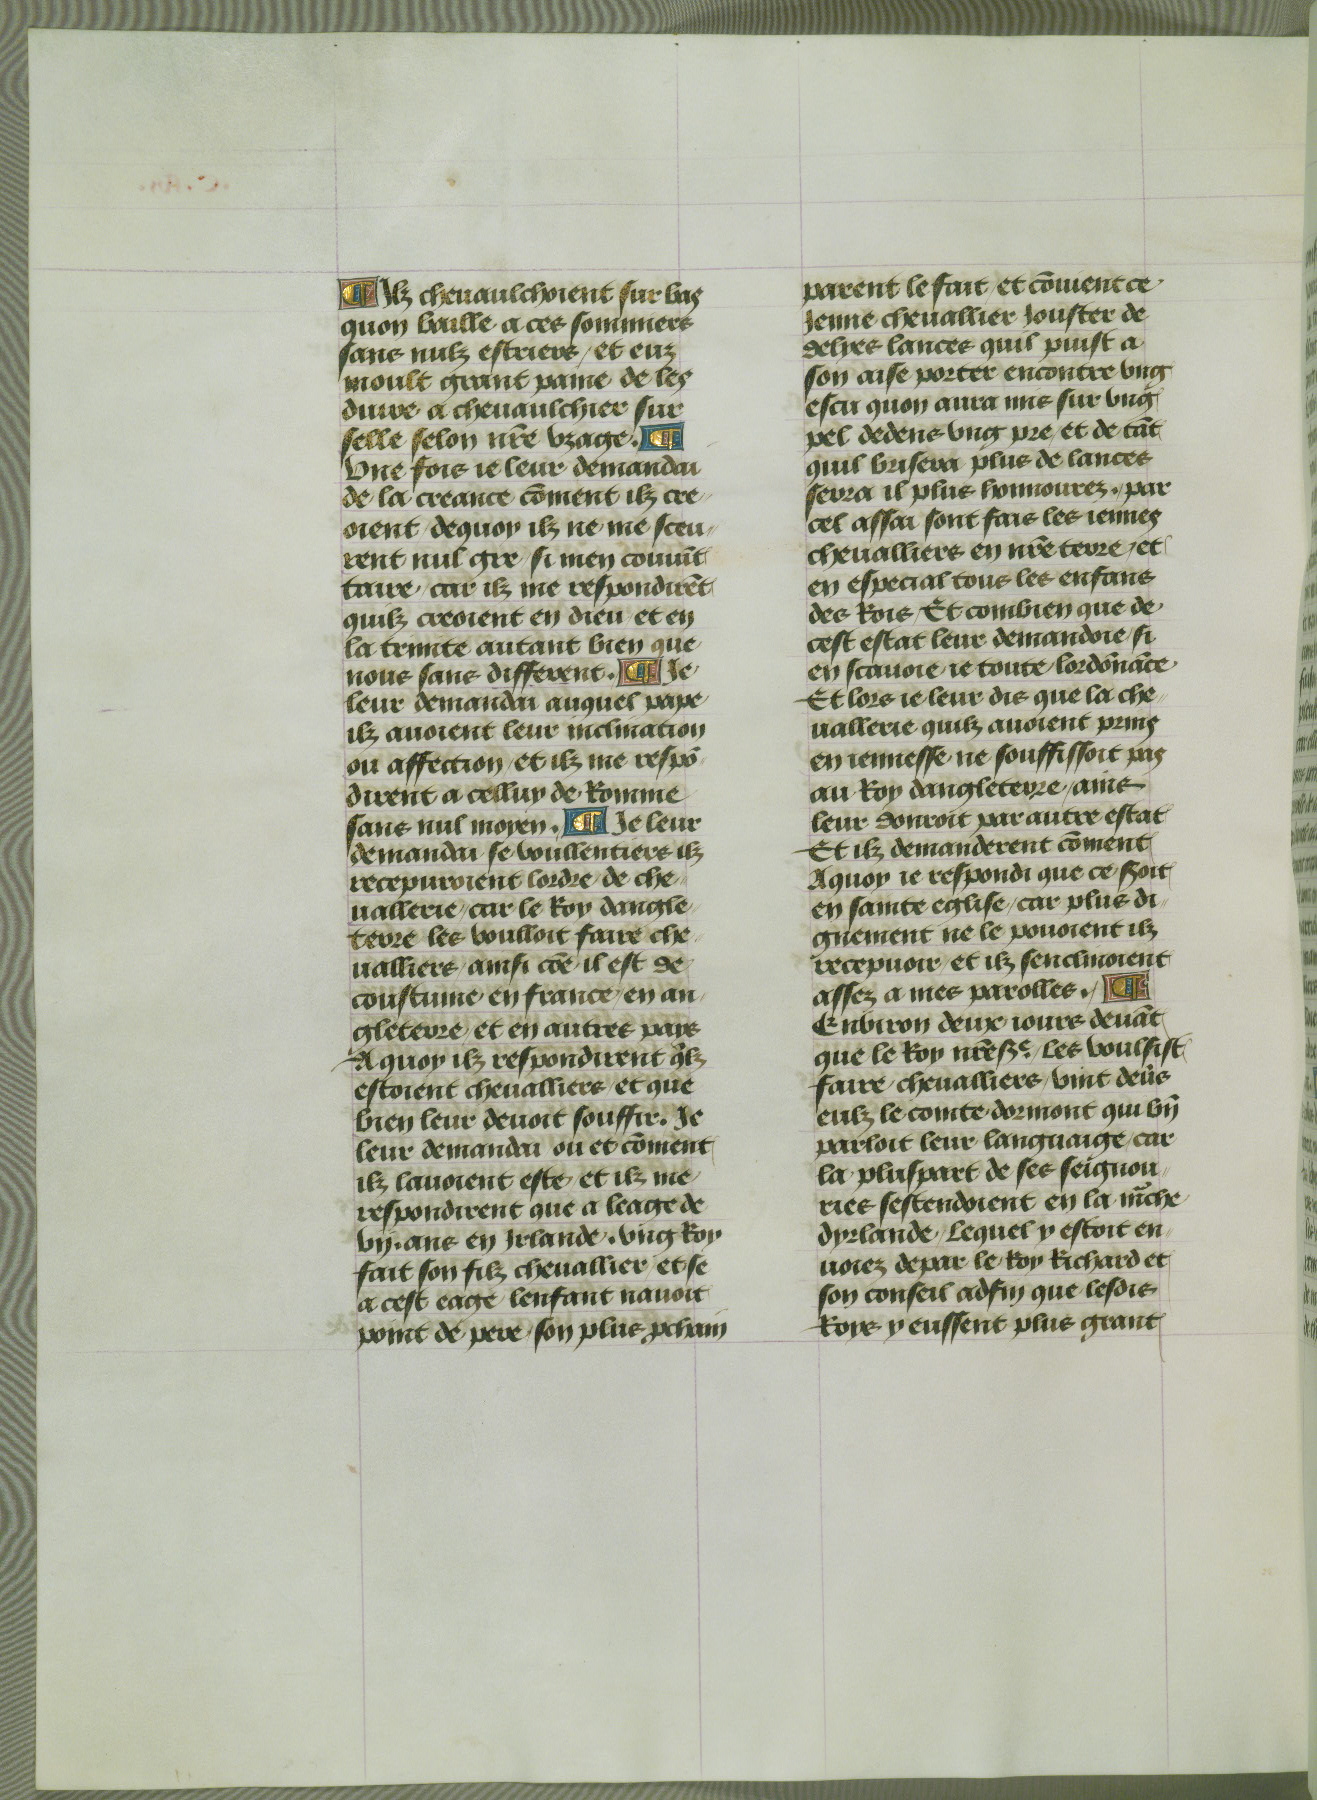 ¶ Ilz cheuaulchoient sur bas
quon baille a ces sommiers
sans nulz estriers / et euz
moult grant paine de les
duire a cheuaulchier sur
selle selon nr̄e vzage. ¶
Vne fois ie leur demandai
de la creance cōment ilz cre-
oient dequoy ilz ne me sceu-
rent nul gre si men couuīt
taire / car ilz me respondirēt
quilz creoient en dieu et en
la trinite autant bien que
nous sans different. ¶ Je
leur demandai auquel pape
ilz auoient leur inclination
ou affection / et ilz me respō-
dirent a celluy de Romme
sans nul moyen. ¶ Je leur
demandai se voullentiers ilz
recepuroient lordre de che-
uallerie / car le Roy dangle-
terre les voulloit faire che-
ualliers / ainsi cōe il est de
coustume en france / en an-
gleterre / et en autres pays
Aquoy ilz respondirent q̄lz
estoient cheualliers / et que
bien leur deuoit souffir. Je
leur demandai ou et cōment
ilz lauoient este / et ilz me
respondirent que a leage de
vij. ans en Jrlande. vng Roy
fait son filz cheuallier et se
a cest eage lenfant nauoit
point de pere / son plus pchain
parent le fait / et cōuient ce
Jenne cheuallier Jouster de
delyes lances quil puist a
son aise porter encontre vng
escu quon aura mis sur vng
pel dedens vng pre / et de tāt
quil brisera plus de lances
serra il plus honnourez. par
cel assai sont fais les iennes
cheualliers en nr̄e terre / et
en especial tous les enfans
des Rois / Et combien que de
cest estat leur demandoie / si
en scauoie ie toute lordōnāce
Et lors ie leur dis que la che-
uallerie quilz auoient prins
en iennesse ne souffissoit pas
au Roy dangleterre / ains
leur donroit par autre estat
Et ilz demanderent cōment
Aquoy ie respondi que ce seroit
en sainte eglise / car plus di-
gnement ne le pouoient ilz
recepuoir / et ilz senclinoient
assez a mes parolles. ¶
Enuiron deux iours deuāt
que le Roy nr̄e sr̄e / les voulsist
faire cheualliers / vint deūs
eulz le comte dormont qui bn̄
parloit leur languaige / car
la pluspart de ses seignou-
ries sestendoient en la m̄che
dyrlande / Lequel y estoit en-
uoiez depar le Roy Richard et
son conseil adfin que lesdis
Roys y eussent plus grant